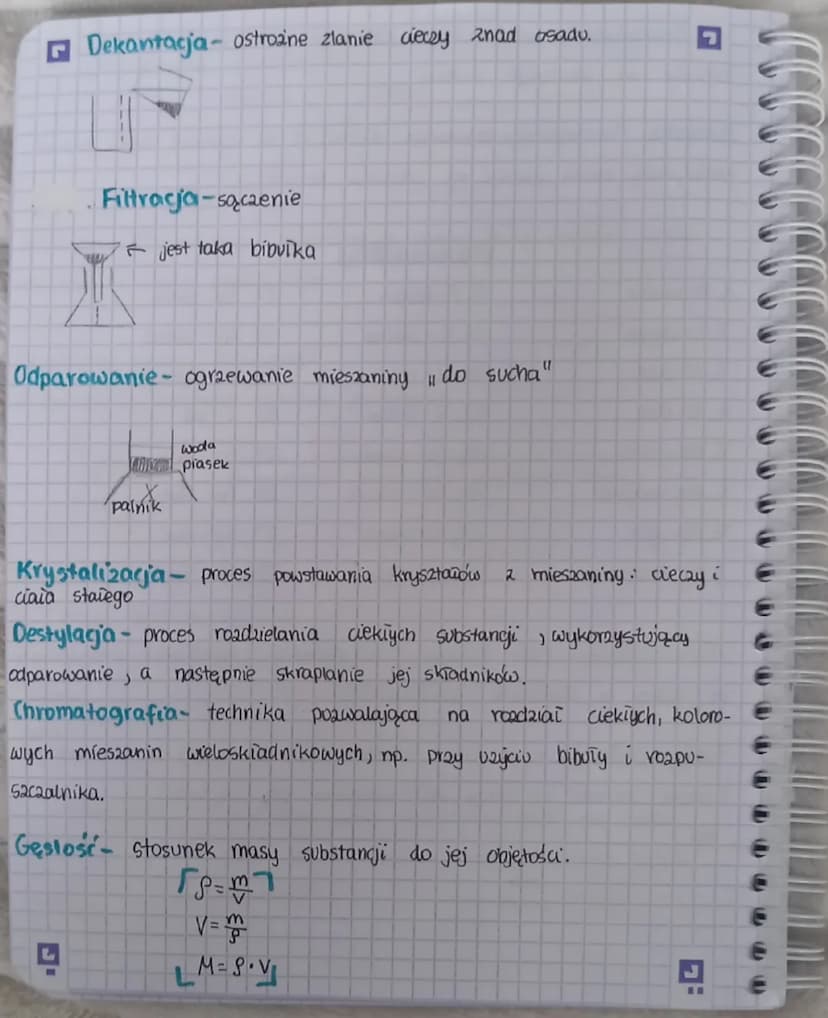 Dekantacja - ostrożne zlanie cieczy znad osadu.
Filtracja - sączenie
← jest taka bibułka
Odparowanie - ogrzewanie mieszaniny „do sucha"
woda
piasek
palnik
Krystalizacja - proces powstawania kryształów z mieszaniny: cieczy i
ciała stałego
Destylacja - proces rozdzielania ciekłych substancji, wykorzystujący
odparowanie, a następnie skraplanie jej składników.
Chromatografia - technika pozwalająca na rozdział ciekłych, koloro-
wych mieszanin wieloskładnikowych, np. przy użyciu bibuły i rozpu-
szczalnika.
Gęstość - stosunek masy substancji do jej objętości.
ρ = m/V
V = m/ρ
M = ρ · V